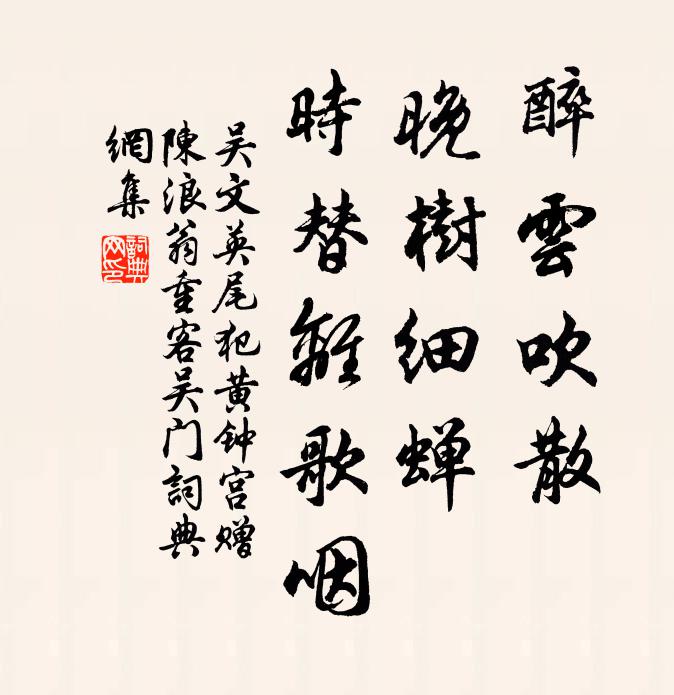 醉雲吹散
晚樹細蟬
時替離歌咽
吴文英尾犯黄钟宫赠
陳浪翁重客吴门詞典
網集
詞典
网印